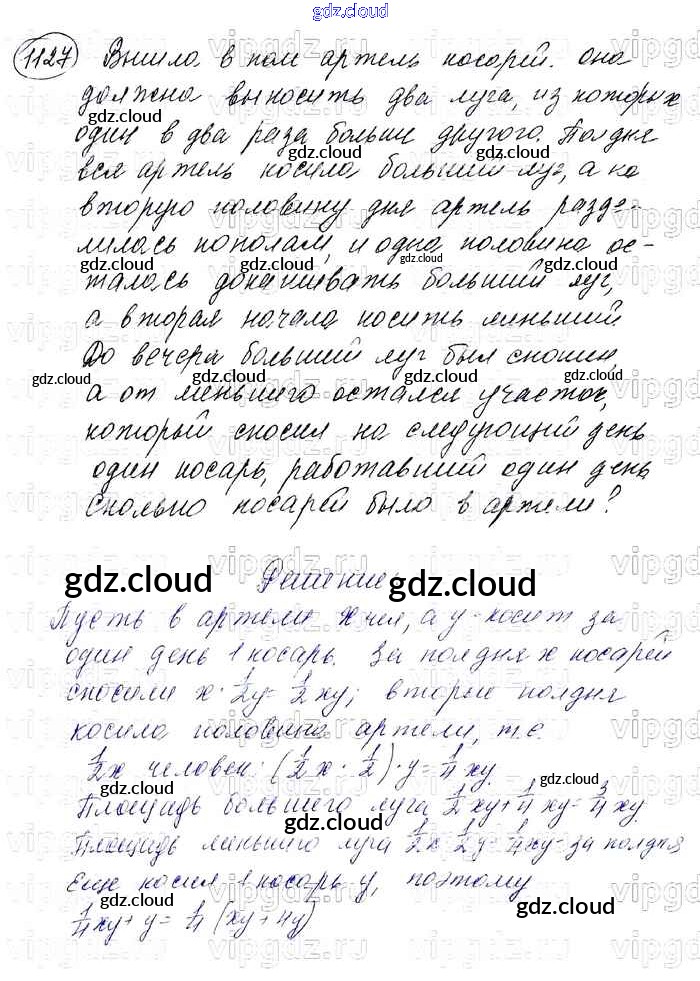 gdz.cloud
1127 Вышла в поле артель косарей. Она
должна выкосить два луга, из которых
один в два раза больше другого. Полдня
вся артель косила больший луг, а на
вторую половину дня артель разде-
лилась пополам, и одна половина ос-
талась докашивать больший луг,
а вторая начала косить меньший
До вечера больший луг был скошен,
а от меньшего остался участок,
который скосил на следующий день
один косарь, работавший один день
сколько косарей было в артели?
Решение
Пусть в артели x чел, а y - косит за
один день 1 косарь. За полдня x косарей
скосили x · 1/2y = 1/2xy; вторые полдня
косила половина артели, т.е.
1/2x человек: (1/2x · 1/2) · y = 1/4xy
Площадь большего луга 1/2xy + 1/4xy = 3/4xy
Площадь меньшего луга 1/2x · 1/2y = 1/4xy - за полдня
Еще косил 1 косарь y, поэтому
1/4xy + y = 1/4(xy + 4y)